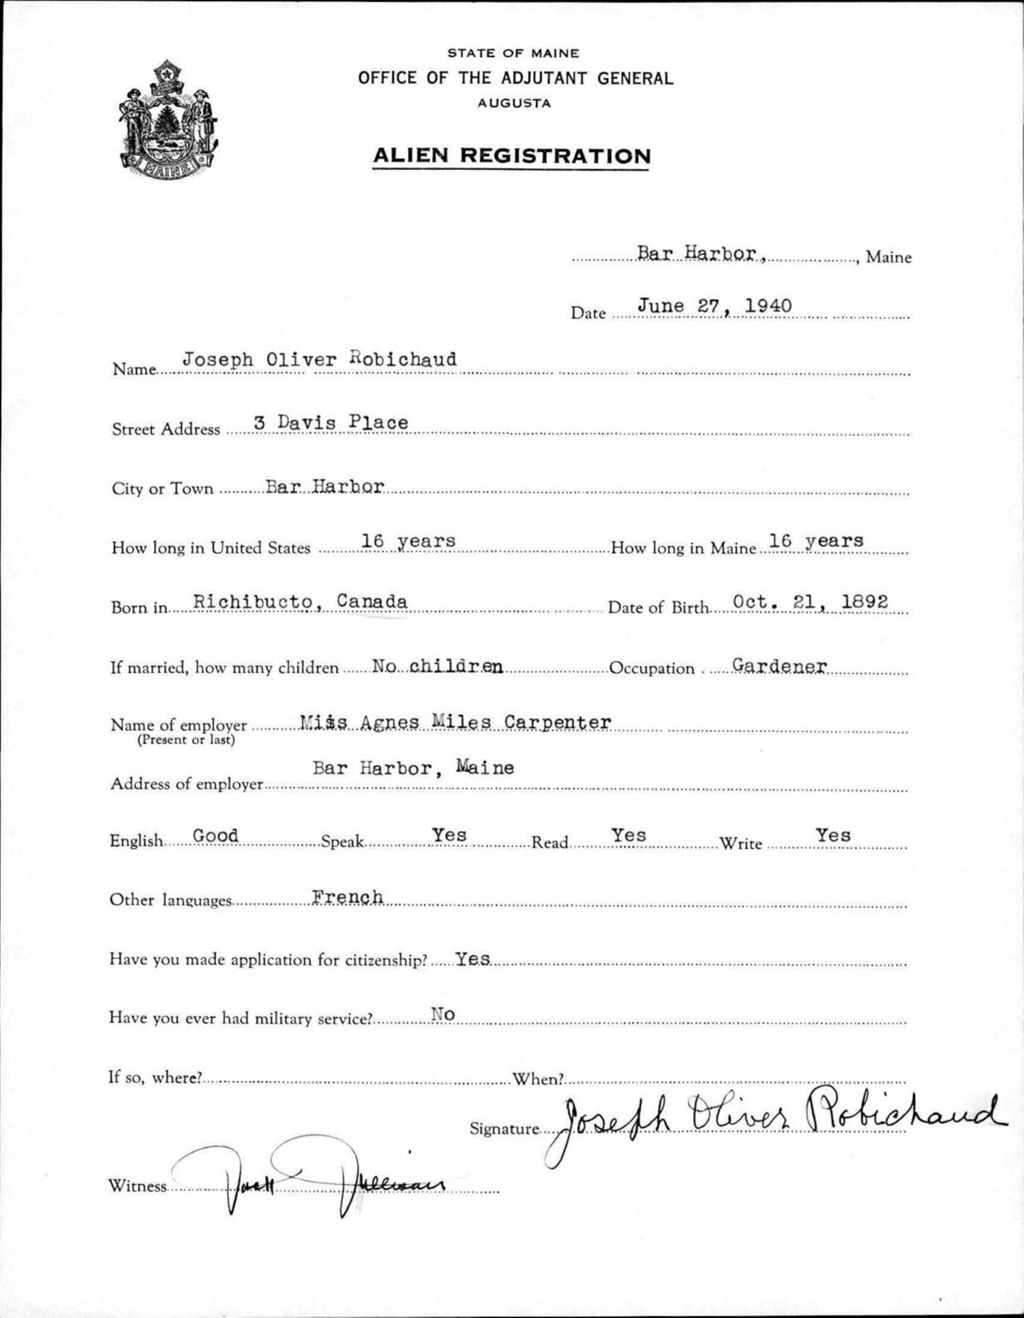 STATE OF MAINE
OFFICE OF THE ADJUTANT GENERAL
AUGUSTA
ALIEN REGISTRATION
MAINE
Bar Harbor, , Maine
Date June 27, 1940
Name Joseph Oliver Robichaud
Street Address 3 Davis Place
City or Town Bar Harbor
How long in United States 16 years How long in Maine 16 years
Born in Richibucto, Canada Date of Birth Oct. 21, 1892
If married, how many children No children Occupation Gardener
Name of employer Miss Agnes Miles Carpenter
(Present or last)
Address of employer Bar Harbor, Maine
English Good Speak Yes Read Yes Write Yes
Other languages French
Have you made application for citizenship? Yes
Have you ever had military service? No
If so, where? When?
Signature Joseph Oliver Robichaud
Witness